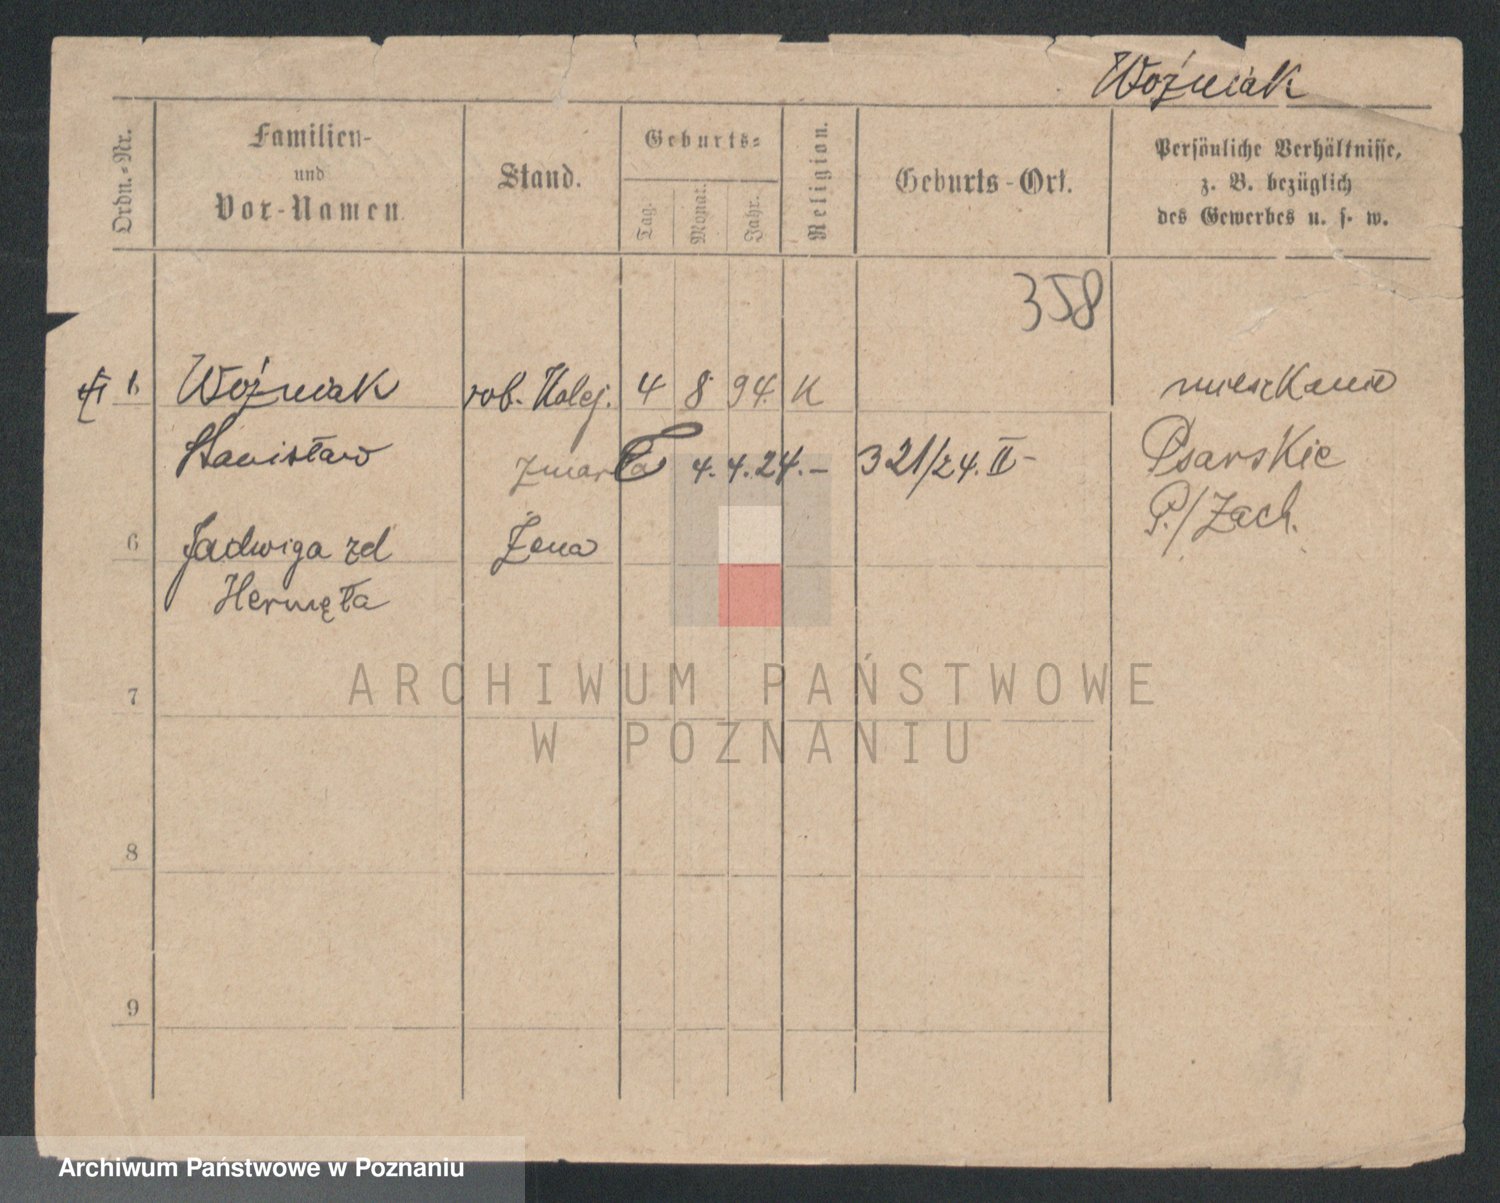 Woźniak
Ordn.-Nr.
Familien-
und
Vor-Namen.
Stand.
Geburts-
Tag.
Monat.
Jahr.
Religion.
Geburts-Ort.
Persönliche Verhältnisse,
z. B. bezüglich
des Gewerbes u. s. w.
358
Woźniak rob. Kolej. 4 8 94. K mieszkanie
Stanisław zmarła 4. 4. 24. – 321/24. II – Psarskie
P./Zach.
6 Jadwiga zd Żona
Hermęła
7
ARCHIWUM PAŃSTWOWE
W POZNANIU
8
9
Archiwum Państwowe w Poznaniu